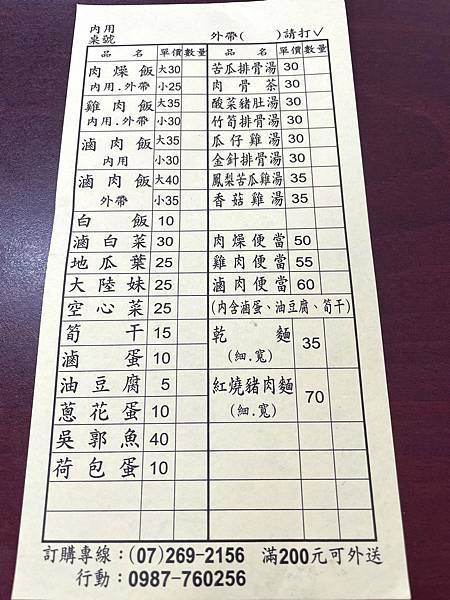 內用
桌號
外帶(　　)請打✓
品名 單價 數量 品名 單價 數量
肉燥飯 大30 苦瓜排骨湯 30
內用.外帶 小25 肉骨茶 30
雞肉飯 大35 酸菜豬肚湯 30
內用.外帶 小30 竹筍排骨湯 30
滷肉飯 大35 瓜仔雞湯 30
內用 小30 金針排骨湯 30
滷肉飯 大40 鳳梨苦瓜雞湯 35
外帶 小35 香菇雞湯 35
白飯 10
滷白菜 30 肉燥便當 50
地瓜葉 25 雞肉便當 55
大陸妹 25 滷肉便當 60
空心菜 25 (內含滷蛋、油豆腐、筍干)
筍干 15 乾麵 35
滷蛋 10 (細.寬)
油豆腐 5 紅燒豬肉麵 70
蔥花蛋 10 (細.寬)
吳郭魚 40
荷包蛋 10
訂購專線：(07)269-2156 滿200元可外送
行動：0987-760256